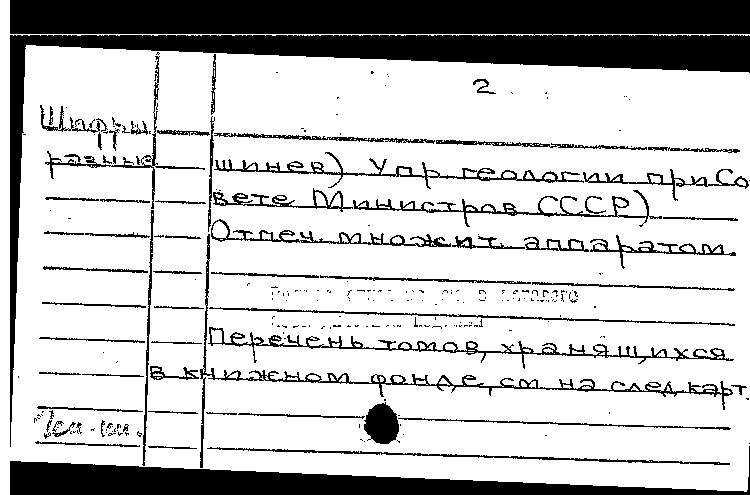 2
Шифры
разные
шинев) Упр геологии при Со
вете Министров СССР)
Отпеч. множит. аппаратом.
Перечень томов, хранящихся
в книжном фонде, см на след карт.